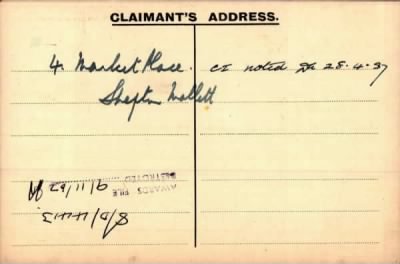 CLAIMANT'S ADDRESS.
4. Market Place. CI noted 28.4.37
Shepton Mallett
AWARDS FILE
DESTROYED 9/11/62
8/D/4443